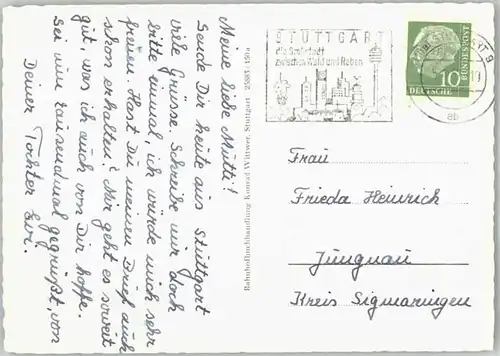 Meine liebe Mutti!
Sende Dir heute aus Stuttgart
viele Grüsse. Schreibe mir doch
bitte einmal, ich würde mich sehr
freuen. Hast Du meinen Brief auch
schon erhalten? Mir geht es soweit
gut, was ich auch von Dir hoffe.
Sei nun tausendmal gegrüßt, von
Deiner Tochter Evi.
Bahnhofbuchhandlung Konrad Wittwer, Stuttgart
STUTTGART
die Großstadt
zwischen Wald und Reben
10
DEUTSCHE
BUNDESPOST
ab
Frau
Frieda Heinrich
Jungnau
Kreis Sigmaringen